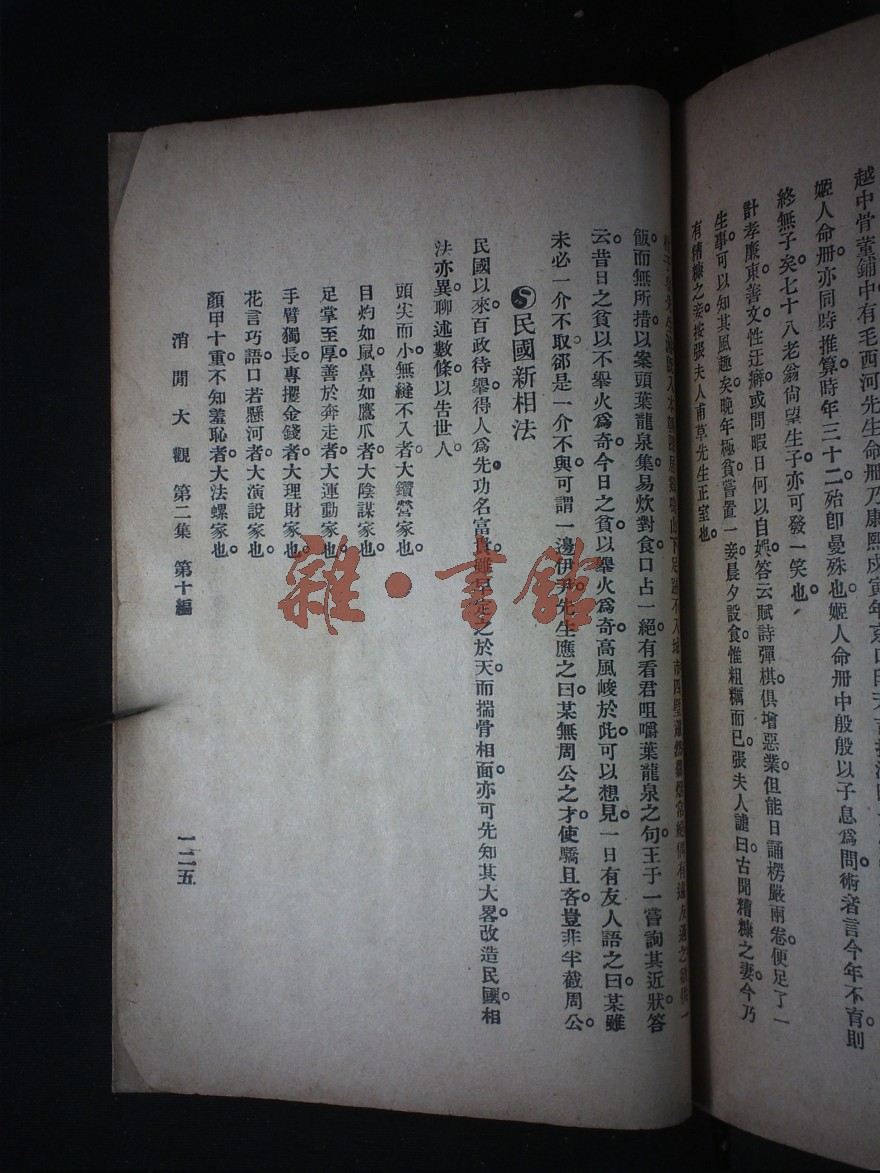 越中骨董鋪中有毛西河先生命冊乃康熙戊寅年京口
姬人命冊亦同時推算時年三十二殆卽曼殊也姬人命冊中殷殷以子息爲問術者言今年不育則
終無子矣七十八老翁尙望生子亦可發一笑也
計孝廉東善文性迂癖或問暇日何以自娛答云賦詩彈棋俱增惡業但能日誦楞嚴兩卷便足了一
生事可以知其風趣矣晚年極貧嘗置一妾晨夕設食惟粗糲而已張夫人謔曰古聞糟糠之妻今乃
有糟糠之妾按張夫人甫草先生正室也
山下足跡不入城市四壁蕭然
飯而無所措以案頭葉龍泉集易炊對食口占一絕有看君咀嚼葉龍泉之句王于一嘗詢其近狀答
云昔日之貧以不舉火爲奇今日之貧以舉火爲奇高風峻於此可以想見一日有友人語之曰某雖
未必一介不取郤是一介不與可謂一邊伊尹先生應之曰某無周公之才使驕且吝豈非半截周公
民國新相法
民國以來百政待舉得人爲先功名富貴雖早定之於天而揣骨相面亦可先知其大畧改造民國相
法亦異聊述數條以告世人
頭尖而小無縫不入者大鑽營家也
目灼如鼠鼻如鷹爪者大陰謀家也
足掌至厚善於奔走者大運動家也
手臂獨長專攫金錢者大理財家也
花言巧語口若懸河者大演說家也
顏甲十重不知羞恥者大法螺家也
消閒大觀 第二集 第十編
一二五
雜·書館